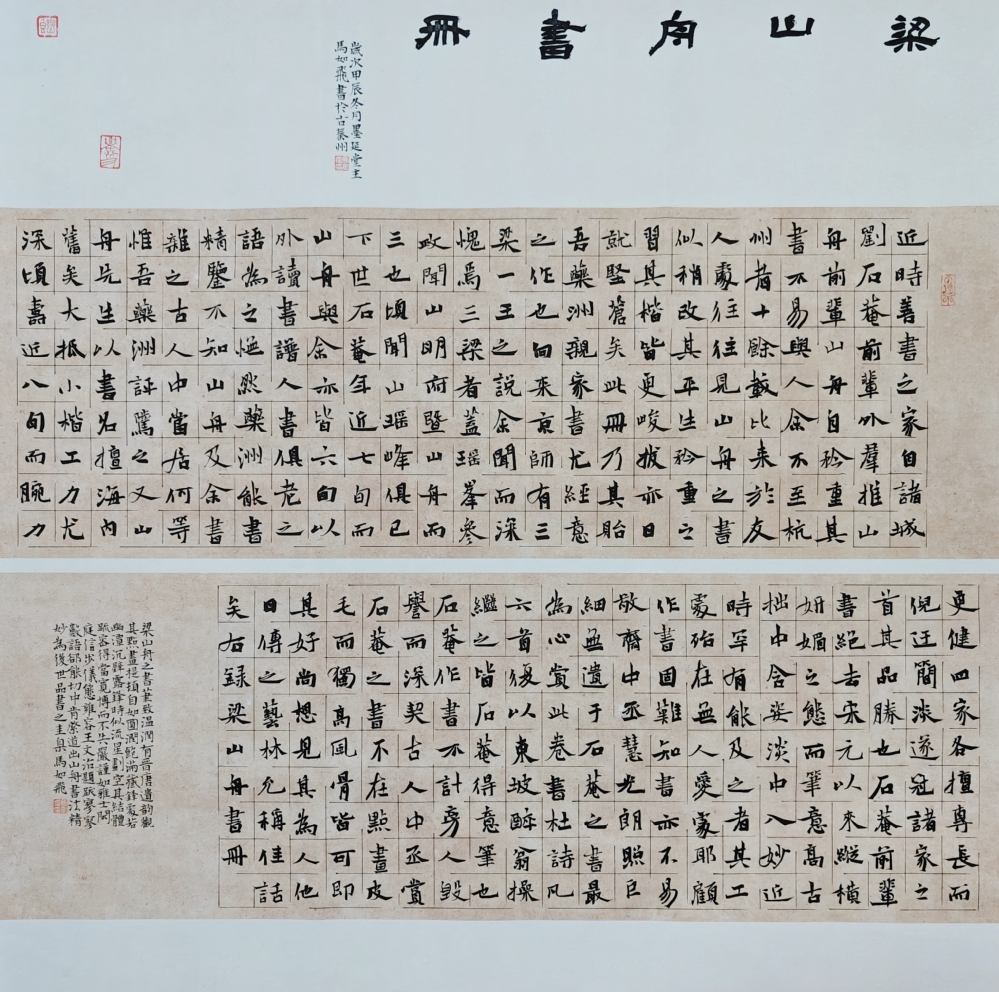 梁山舟書冊
歲次甲辰冬月墨延堂主
馬如飛書於古蔡州
近時善書之家自諸城
劉石菴前輩外羣推山
舟前輩山舟自矜重其
書不易與人余不至杭
州者十餘載比來於友
人處往往見山舟之書
似稍改其平生矜重之
習其楷皆更峻拔亦日
就堅蒼矣此冊乃其貽
吾藥洲親家書尤經意
之作也向來京師有三
梁一王之說余聞而深
愧焉三梁者蓋瑶峯參
政聞山明府暨山舟而
三也頃聞山瑶峰俱已
下世石菴年近七旬而
山舟與余亦皆六旬以
外讀書譜人書俱老之
語為之憮然藥洲能書
精鑒不知山舟及余書
雜之古人中當居何等
惟吾藥洲評騭之又山
舟先生以書名擅海內
舊矣大抵小楷工力尤
深頃壽近八旬而腕力
更健四家各擅專長而
倪迂簡淡遂冠諸家之
首其品勝也石菴前輩
書絕去宋元以來蹤橫
妍媚之態而筆意高古
拙中含姿淡中入妙近
時罕有能及之者其工
處殆在無人愛處耶顧
作書固難知書亦不易
敬齋中丞慧光朗照巨
細無遺于石菴之書最
為心賞此卷書杜詩凡
六首復以東坡醉翁操
繼之皆石菴得意筆也
石菴作書不計旁人毀
譽而深契古人中丞賞
石菴之書不在點畫皮
毛而獨高風骨皆可即
其好尚想見其為人他
日傳之藝林允稱佳話
矣右録梁山舟書冊
梁山舟之書筆致温潤有晉唐遺韵觀
其點畫提頓自如圓潤飽滿藏鋒處若
幽潭沉靜露鋒時似流星劃空其結體
疏密得當寬博而不失嚴謹如雅士閑
庭信步儀態雍容王文治題跋寥寥
數語卻能切中肯綮道出山舟書法精
妙為後世品書之圭臬馬如飛